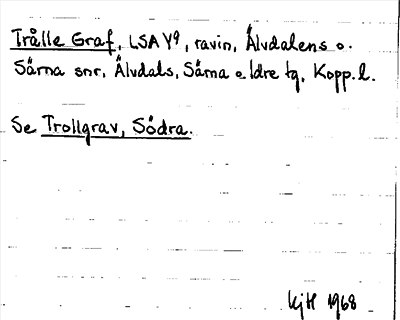 Trålle Graf, LSA Y9, ravin, Älvdalens o.
Särna snr, Älvdals, Särna o Idre tg, Kopp. l.
Se Trollgrav, Södra.
KjH 1968